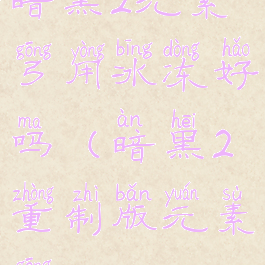 暗黑2元素
gōng yòng bīng dòng hǎo
弓用冰冻好
ma àn hēi
吗（暗黑2
zhòng zhì bǎn yuán sù
重制版元素
gōng